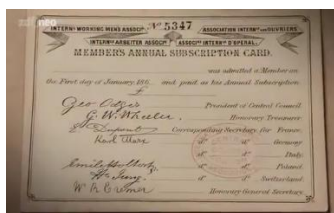 zdf neo
Nº 5347
INTERN¹ WORKING MENS ASSOCN ASSOCIATION INTERN¹ᵉ des OUVRIERS
INTERN¹ᵉ ARBEITER ASSOCN ASSOCe INTERNe D'OPERAI
MEMBER'S ANNUAL SUBSCRIPTION CARD.
was admitted a Member on
the First day of January 186 and paid as his Annual Subscription
£
Geo Odger President of Central Council.
G. W. Wheeler. Honorary Treasurer.
E. Dupont Corresponding Secretary for France.
Karl Marx dº dº Germany
dº dº Italy
dº dº Poland
H. Jung dº dº Switzerland
W R Cremer Honorary General Secretary.